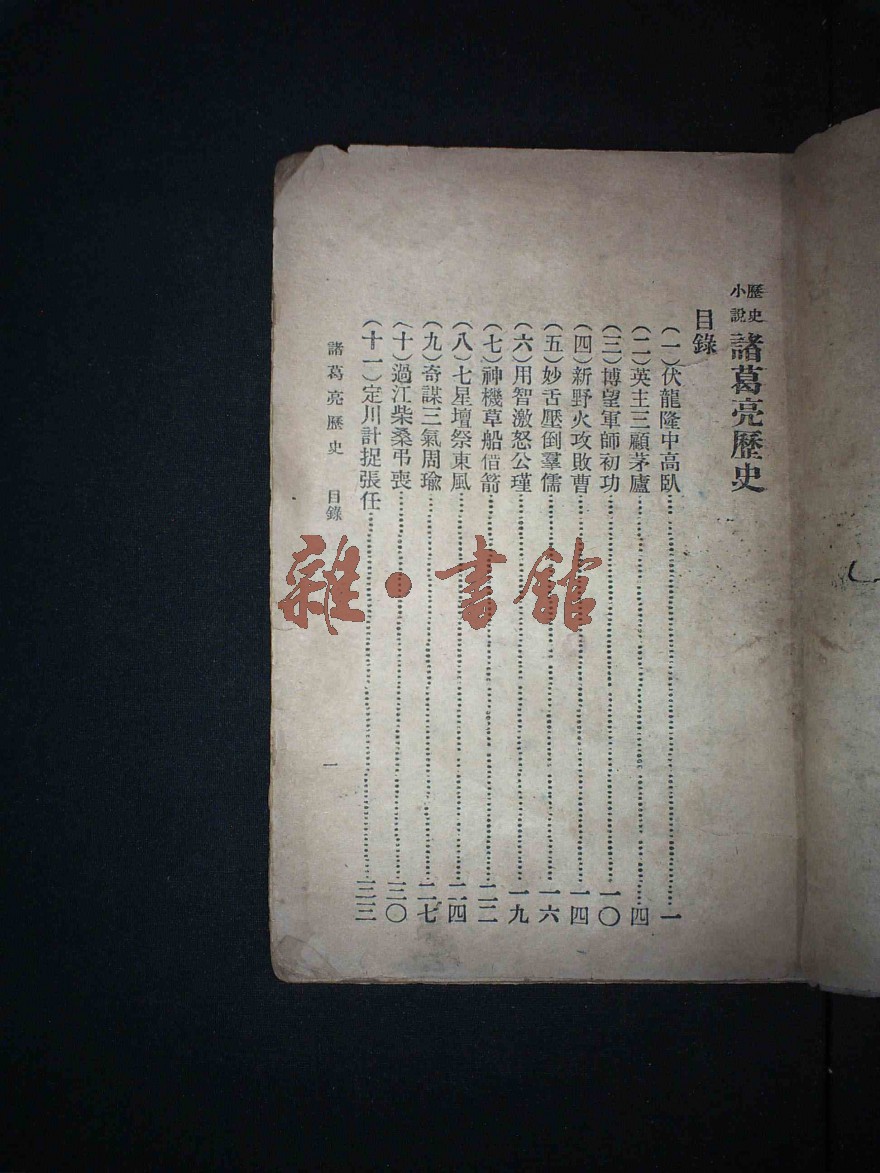 歷史小說 諸葛亮歷史
目錄
（一）伏龍隆中高臥……一
（二）英主三顧茅廬……四
（三）博望軍師初功……一〇
（四）新野火攻敗曹……一四
（五）妙舌壓倒羣儒……一六
（六）用智激怒公瑾……一九
（七）神機草船借箭……二二
（八）七星壇祭東風……二四
（九）奇謀三氣周瑜……二七
（十）過江柴桑弔喪……三〇
（十一）定川計捉張任……三三
諸葛亮歷史 目錄 一
雜·書館